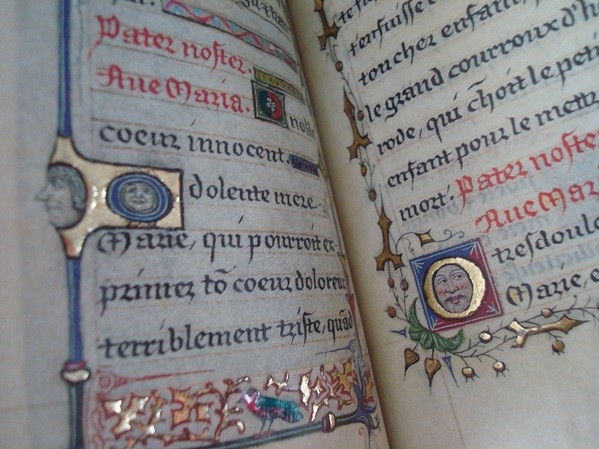 Pater noster.
Aue Maria. O noble
coeur innocent.
O dolente mere
Marie, qui pourroit ex-
primer tõ coeur doloreux
terriblement triste, quãd
tenfuisse
toucher enfant,
le grand courroux d'h
rode, qui ch̃oit le peti
enfant pour le mettr
mort. Pater noste
Aue Mar
O tresdoulc
Marie, e